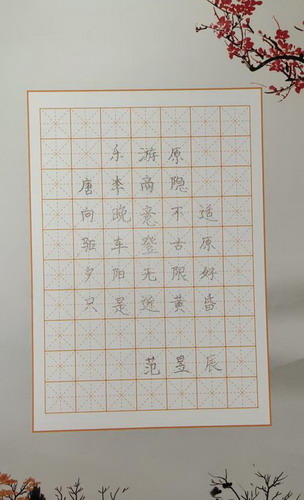 乐游原
唐李商隐
向晚意不适
驱车登古原
夕阳无限好
只是近黄昏
范昱辰